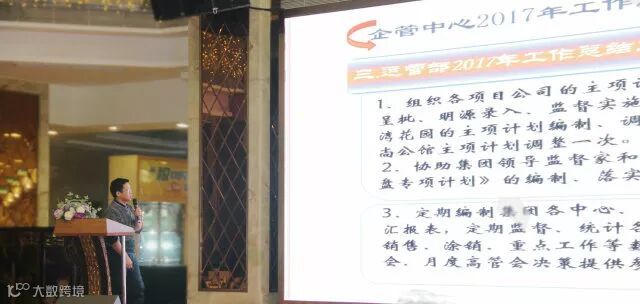 企管中心2017年工作
三、运营部2017年工作总结
1、组织各项目公司的主项计
呈批、明源录入、监督实施
湾花园的主项计划编制、调
尚公馆主项计划调整一次。
2、协助集团领导监督家和
盘专项计划》的编制、落实
3、定期编制集团各中心、
汇报表，定期监督、统计各
销售、涂销、重点工作等数
会、月度高管会决策提供参
大数跨境